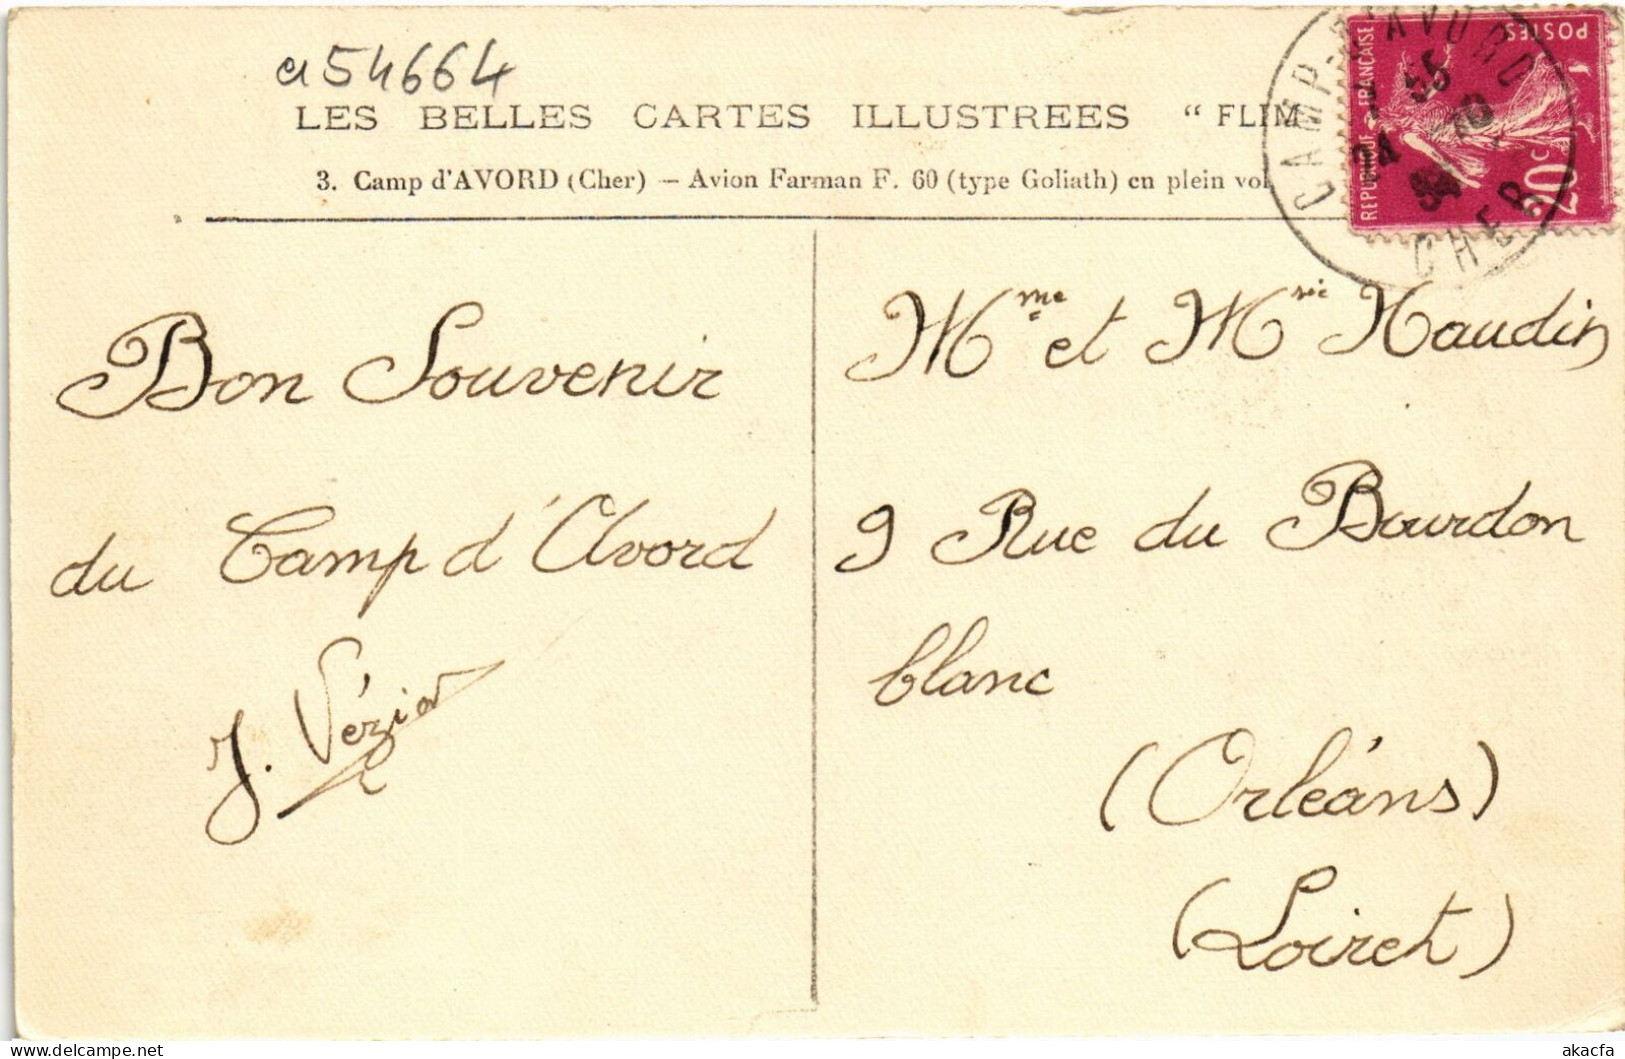 a54664
LES BELLES CARTES ILLUSTREES " FLIM
3. Camp d'AVORD (Cher) — Avion Farman F. 60 (type Goliath) en plein vol
CAMP-D'AVORD
CHER
REPUBLIQUE FRANÇAISE
POSTES
20c
Bon Souvenir
du Camp d'Avord
J. Vézier
Mme et Mr Naudin
9 Rue du Bourdon
blanc
(Orléans)
(Loiret)
delcampe.net
akacfa